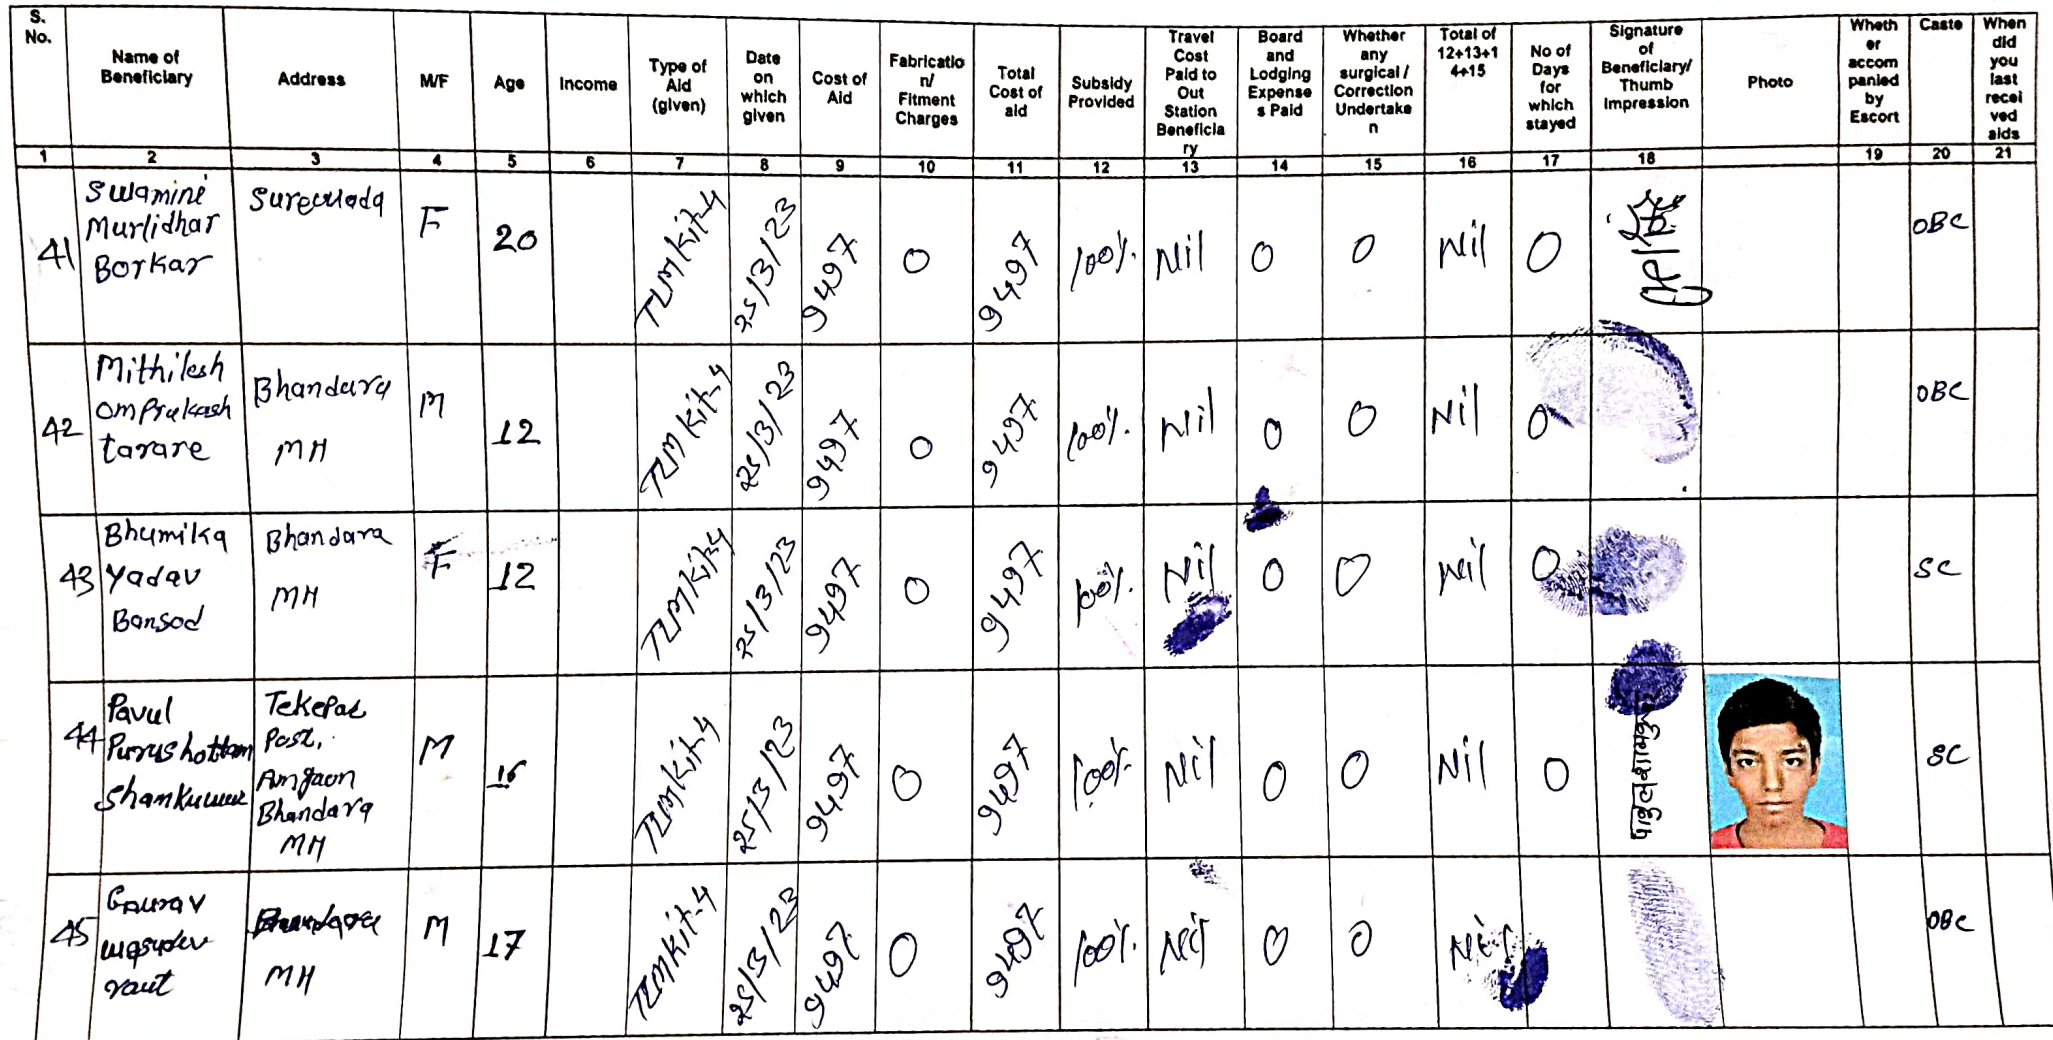 S. No. Name of Beneficiary Address M/F Age Income Type of Aid (given) Date on which given Cost of Aid Fabricatio n/ Fitment Charges Total Cost of aid Subsidy Provided Travel Cost Paid to Out Station Beneficia ry Board and Lodging Expense s Paid Whether any surgical / Correction Undertake n Total of 12+13+1 4+15 No of Days for which stayed Signature of Beneficiary/ Thumb Impression Photo Wheth er accom panied by Escort Caste When did you last recei ved aids
1 2 3 4 5 6 7 8 9 10 11 12 13 14 15 16 17 18 19 20 21
41 Swamini Murlidhar Borkar Surewada F 20 TLM kit-4 25/3/23 9497 0 9497 100% Nil 0 0 Nil 0 OBC
42 Mithilesh omprakash tarare Bhandara MH M 12 TLM kit-4 25/3/23 9497 0 9497 100% Nil 0 0 Nil 0 OBC
43 Bhumika Yadav Bansod Bhandara MH F 12 TLM kit-4 25/3/23 9497 0 9497 100% Nil 0 0 Nil 0 SC
44 Pavul Purushottam Tekepar Post, Amgaon Bhandara MH M 16 TLM kit-4 25/3/23 9497 0 9497 100% Nil 0 0 Nil 0 SC
45 Gaurav wasudev raut MH M 17 TLM kit-4 25/3/23 9497 0 9497 100% Nil 0 0 Nil OBC